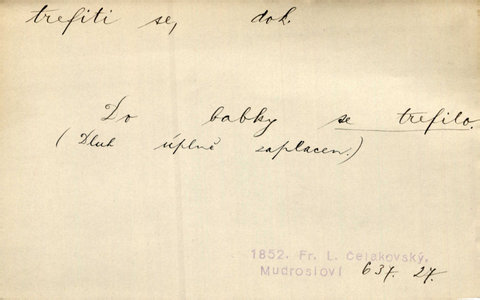 trefiti se, dok.
Do babky se trefilo.
(Dluh úplně zaplacen.)
1852. Fr. L. Čelakovský,
Mudrosloví 637. 27.